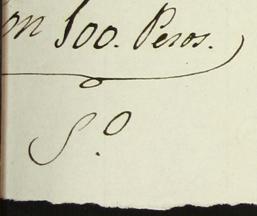 on 500. Pesos.
S.º